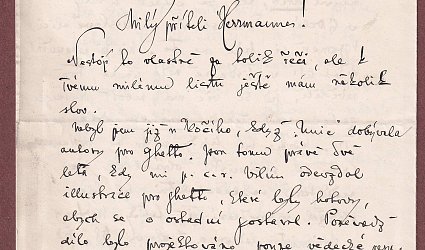 Milý příteli Herrmanne!
Nestojí to vlastně za tolik řečí, ale k
Tvému milému listu ještě mám několik
slov.
Nebyl jsem již u Kočího, když „Unie" dobývala
autory pro Ghetto. Jsou tomu právě dvě
léta, kdy mi p. c. r. Vilím odevzdal
illustrace pro ghetto, které byly hotovy,
abych se o ostatní postaral. Poněvadž
dílo bylo projektováno pouze vědecké